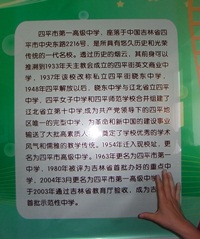 四平市第一高级中学，座落于中国吉林省四
平市中央东路216号，是所具有悠久历史和光荣
传统的一代名校。透过历史的烟云，其前身可以
推溯到1933年天主教会成立的四平街英文商业中
学，1937年该校改称私立四平街晓东中学，
1948年四平解放以后，晓东中学与辽北省立四平
中学、四平女子中学和四平师范学校合并组建了
辽北省立第十中学成为共产党领导下的四平地
区唯一的完型中学，为革命和新中国的建设事业
输送了大批高素质人 奠定了学校优秀的学术
风气和儒雅的教学传统。1954年迁入现校址，更
名为四平市高级中学。1963年更名为四平市第一
中学，1980年被评为吉林省首批办好的重点中
学，2004年3月更名为四平市第一高级中学，
于2003年通过吉林省教育厅验收，成为吉
首批示范性中学。